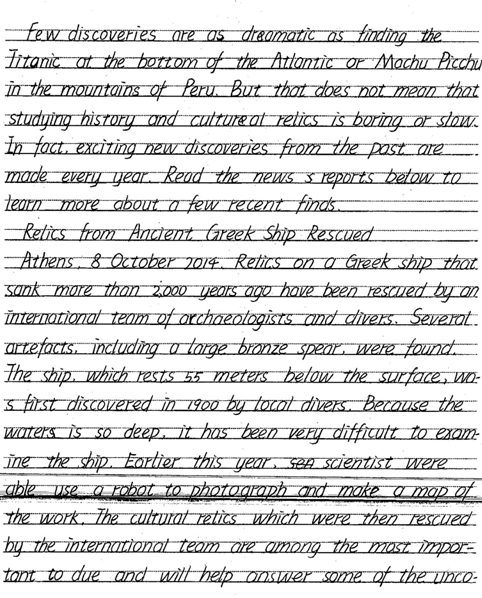 Few discoveries are as dreamatic as finding the
Titanic at the bottom of the Atlantic or Machu Picchu
in the mountains of Peru. But that does not mean that
studying history and cultureal relics is boring or slow.
In fact, exciting new discoveries from the past are
made every year. Read the news s reports below to
learn more about a few recent finds.
Relics from Ancient Greek Ship Rescued
Athens, 8 October 2014. Relics on a Greek ship that
sank more than 2,000 years ago have been rescued by an
international team of archaeologists and divers. Several
artefacts, including a large bronze spear, were found.
The ship, which rests 55 meters below the surface, wa-
s first discovered in 1900 by local divers. Because the
waters is so deep, it has been very difficult to exam-
ine the ship. Earlier this year, scientist were
able use a robot to photograph and make a map of
the work. The cultural relics which were then rescued
by the international team are among the most impor-
tant to due and will help answer some of the unco-